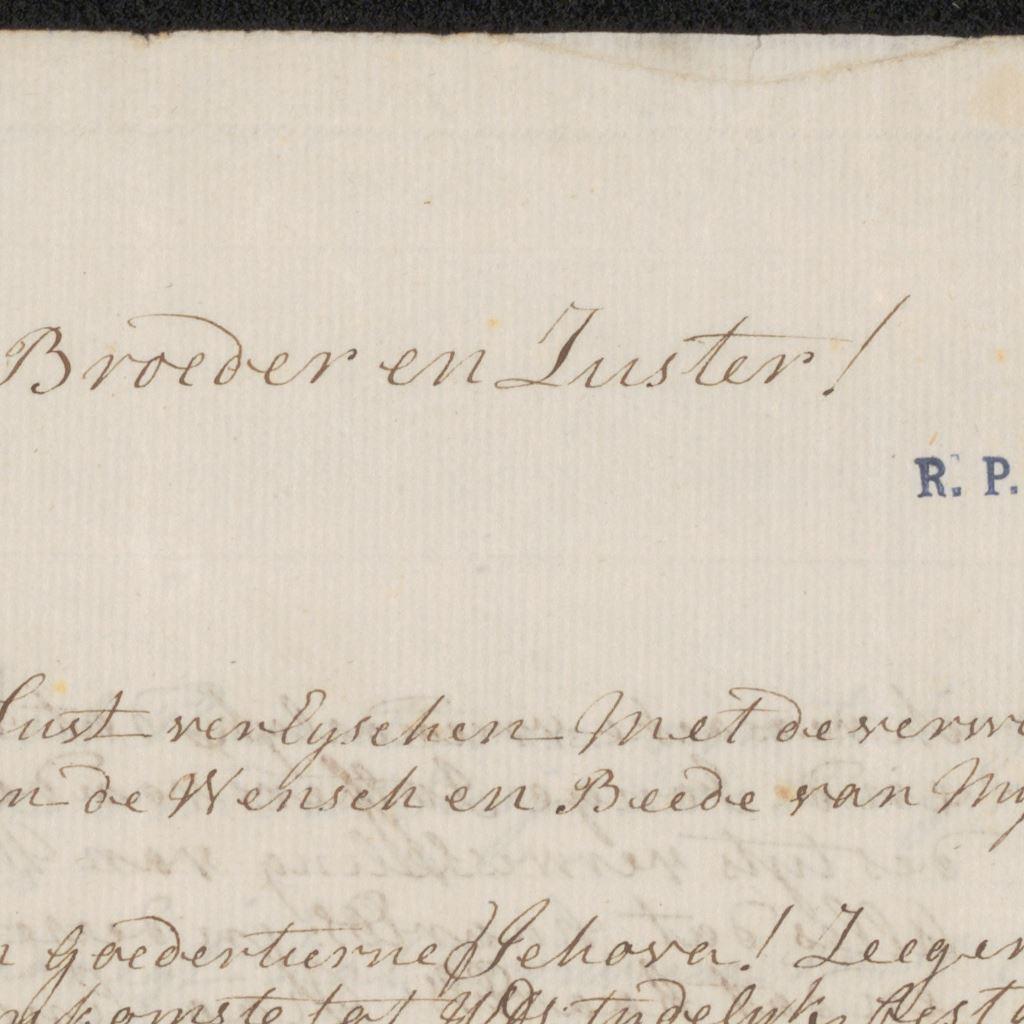 Broeder en Zuster!
R. P.
lust verlyschen Met de verw
n de Wensch en Beede van My
Goedertierne Jehova! Zeegen
komste tot UEds tydelyk best